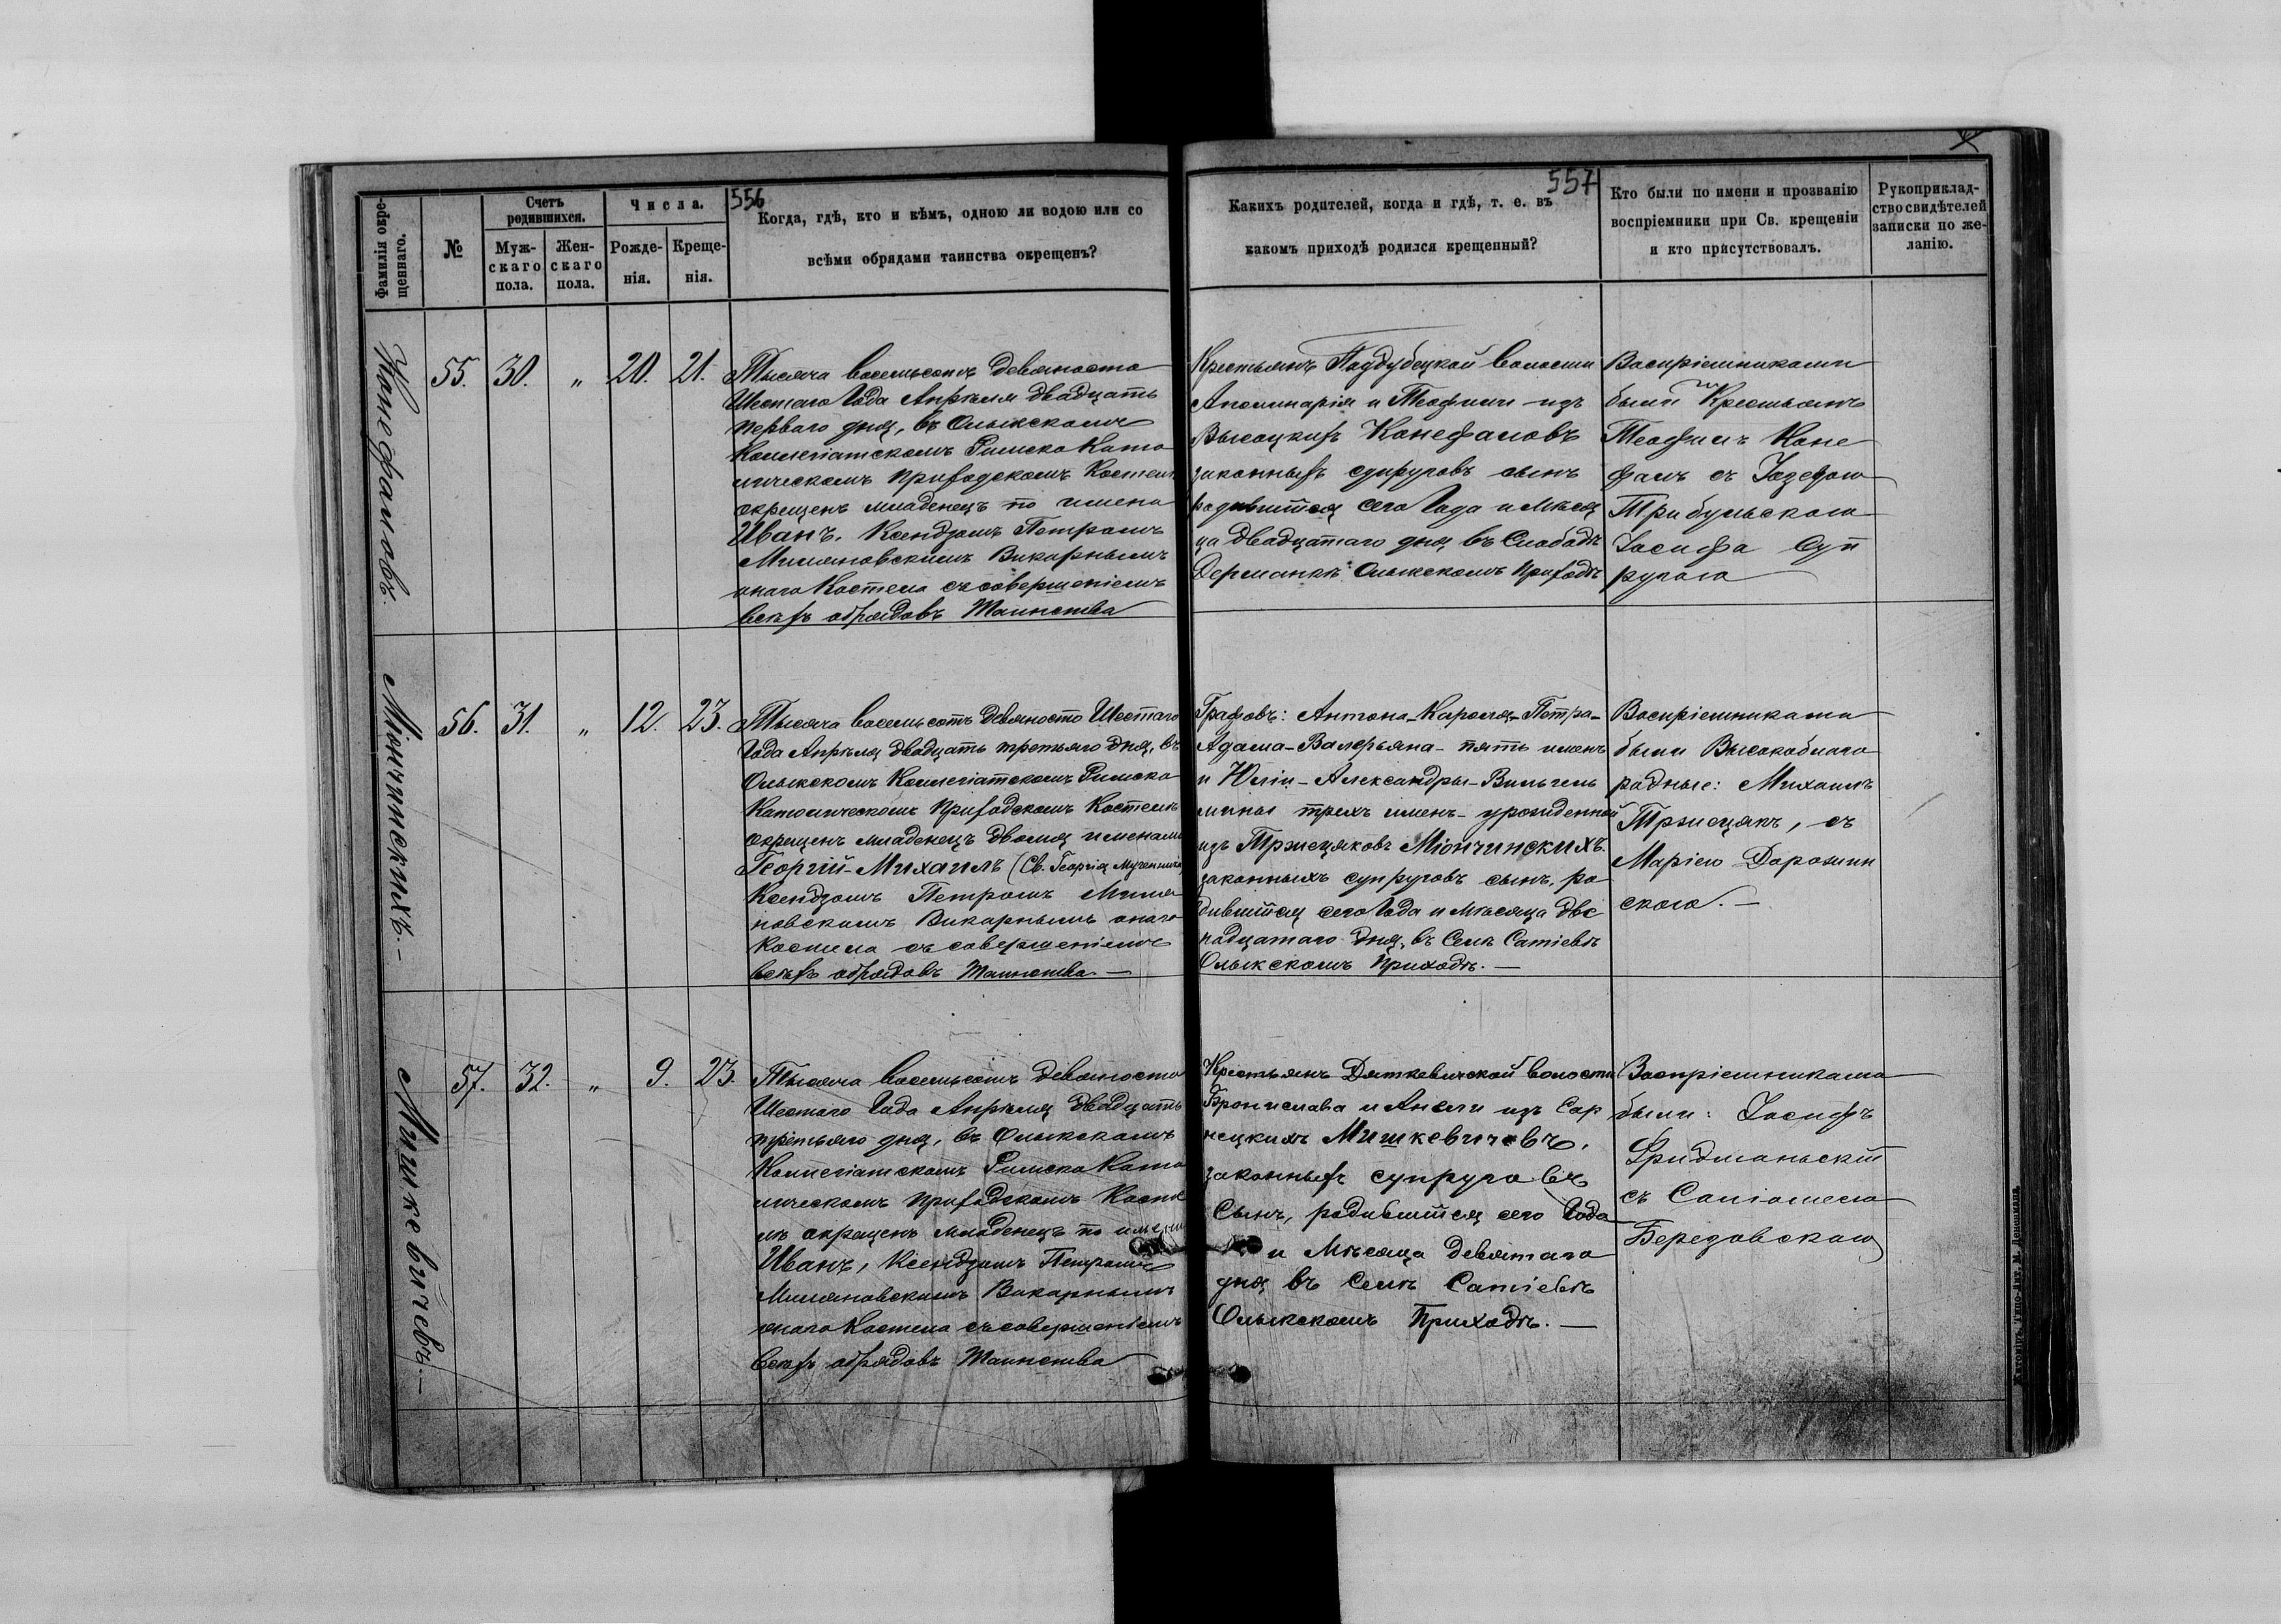 556
Фамилія окре-
щеннаго.
№
Счетъ
родившихся.
Муж-
скаго
пола.
Жен-
скаго
пола.
Числа.
Рожде-
нія.
Креще-
нія.
Когда, гдѣ, кто и кѣмъ, одною ли водою или со
всѣми обрядами таинства окрещенъ?
557
Какихъ родителей, когда и гдѣ, т. е. въ
какомъ приходѣ родился крещенный?
Кто были по имени и прозванію
воспріемники при Св. крещеніи
и кто присутствовалъ.
Рукоприклад-
ство свидѣтелей
записки по же-
ланію.
Конефаловъ.
55.
30.
"
20.
21.
Тысяча восемьсотъ девяносто
Шестаго Года Апрѣля двадцать
перваго дня, въ Олыкскомъ
Коллегіатскомъ Римско Като
лическомъ приходскомъ Костелѣ
окрещенъ младенецъ по имени
Иванъ. Ксендзомъ Петромъ
Миляновскимъ Викарнымъ
онаго Костела съ совершеніемъ
всѣхъ обрядовъ Таинства
Крестьянъ Поддубецкой волости
Аполинарія и Теофили изъ
Высоцкихъ Конефаловъ
законныхъ супруговъ сынъ
родившійся сего Года и Мѣся
ца двадцатаго дня въ Слободѣ
Дерманкѣ Олыкскомъ Приходѣ
Воспріемниками
были Крестьянъ
Теофилъ Коне
фалъ съ Іозефою
Трибульскою
Іосифа Суп
ругою
Міончинскихъ.—
56.
31.
"
12.
23.
Тысяча восемьсотъ девяносто Шестаго
Года Апрѣля двадцать третьяго дня, въ
Олыкскомъ Коллегіатскомъ Римско
Католическомъ Приходскомъ Костелѣ
окрещенъ младенецъ двомя именами
Георгій-Михаилъ (Св. Георгія Мученика)
Ксендзомъ Петромъ Миля
новскимъ Викарнымъ онаго
Костела съ совершеніемъ
всѣхъ обрядовъ Таинства.—
Графовъ: Антона-Кароля-Петра-
Адама-Валерьяна- пять именъ
и Юліи-Александры-Вильгель
мины трехъ именъ- урожденной
изъ Тржецяковъ Міончинскихъ.
законныхъ супруговъ сынъ, ро
дившійся сего Года и Мѣсяца две
надцатаго дня, въ Селѣ Сатіевѣ
Олыкскомъ Приходѣ.—
Воспріемниками
были Высокоблаго
родные: Михаилъ
Тржецякъ, съ
Маріею Дорожин
скою.—
Мишкевичевъ.—
57.
32.
"
9.
23.
Тысяча восемьсотъ девяносто
Шестаго Года Апрѣля двадцать
третьяго дня, въ Олыкскомъ
Коллегіатскомъ Римско Като
лическомъ приходскомъ Косте
лѣ окрещенъ младенецъ по имени
Иванъ, Ксендзомъ Петромъ
Миляновскимъ Викарнымъ
онаго Костела съ совершеніемъ
всѣхъ обрядовъ Таинства
Крестьянъ Дятковичской волости
Бронислава и Анели изъ Сар
нецкихъ Мишкевичевъ,
законныхъ супруговъ
Сынъ, родившійся сего Года
и Мѣсяца девятаго
дня въ Селѣ Сатіевѣ
Олыкскомъ Приходѣ.—
Воспріемниками
были: Іосифъ
Фридманьскій
съ Саліомею
Березовскою
Житоміръ. Типо-Лит. М. Дененмана.